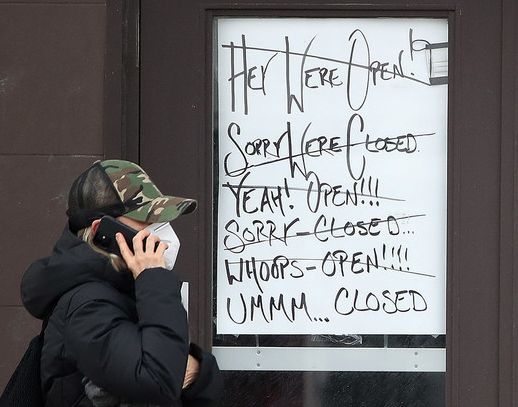 HEY WERE OPEN!
SORRY WERE CLOSED
YEAH! OPEN!!!
SORRY-CLOSED...
WHOOPS-OPEN!!!!
UMMM... CLOSED